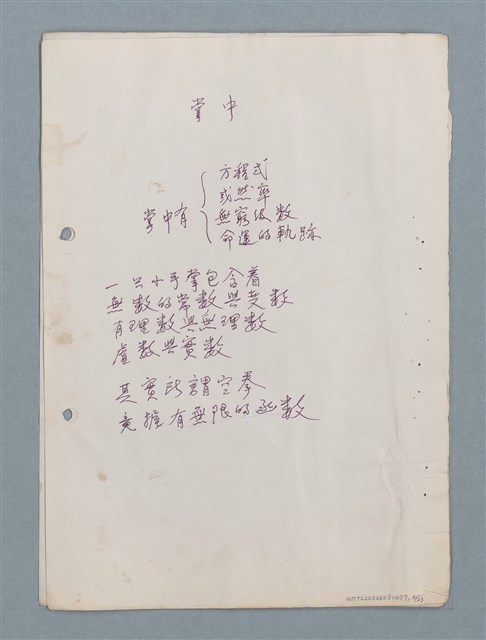 掌中
方程式
或然率
掌中有
無窮級數
命運的軌跡
一只小手掌包含着
無数的常数與变数
有理数與無理数
虛数與實数
其實所謂空拳
竟握有無限的函数